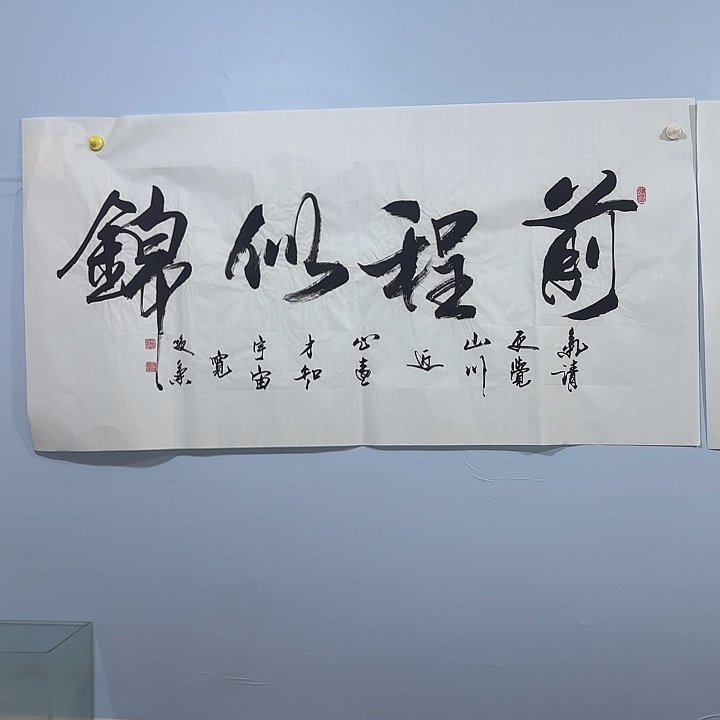 前程似錦
氣清
更覺
山川
近
心
才知
宇宙
寬